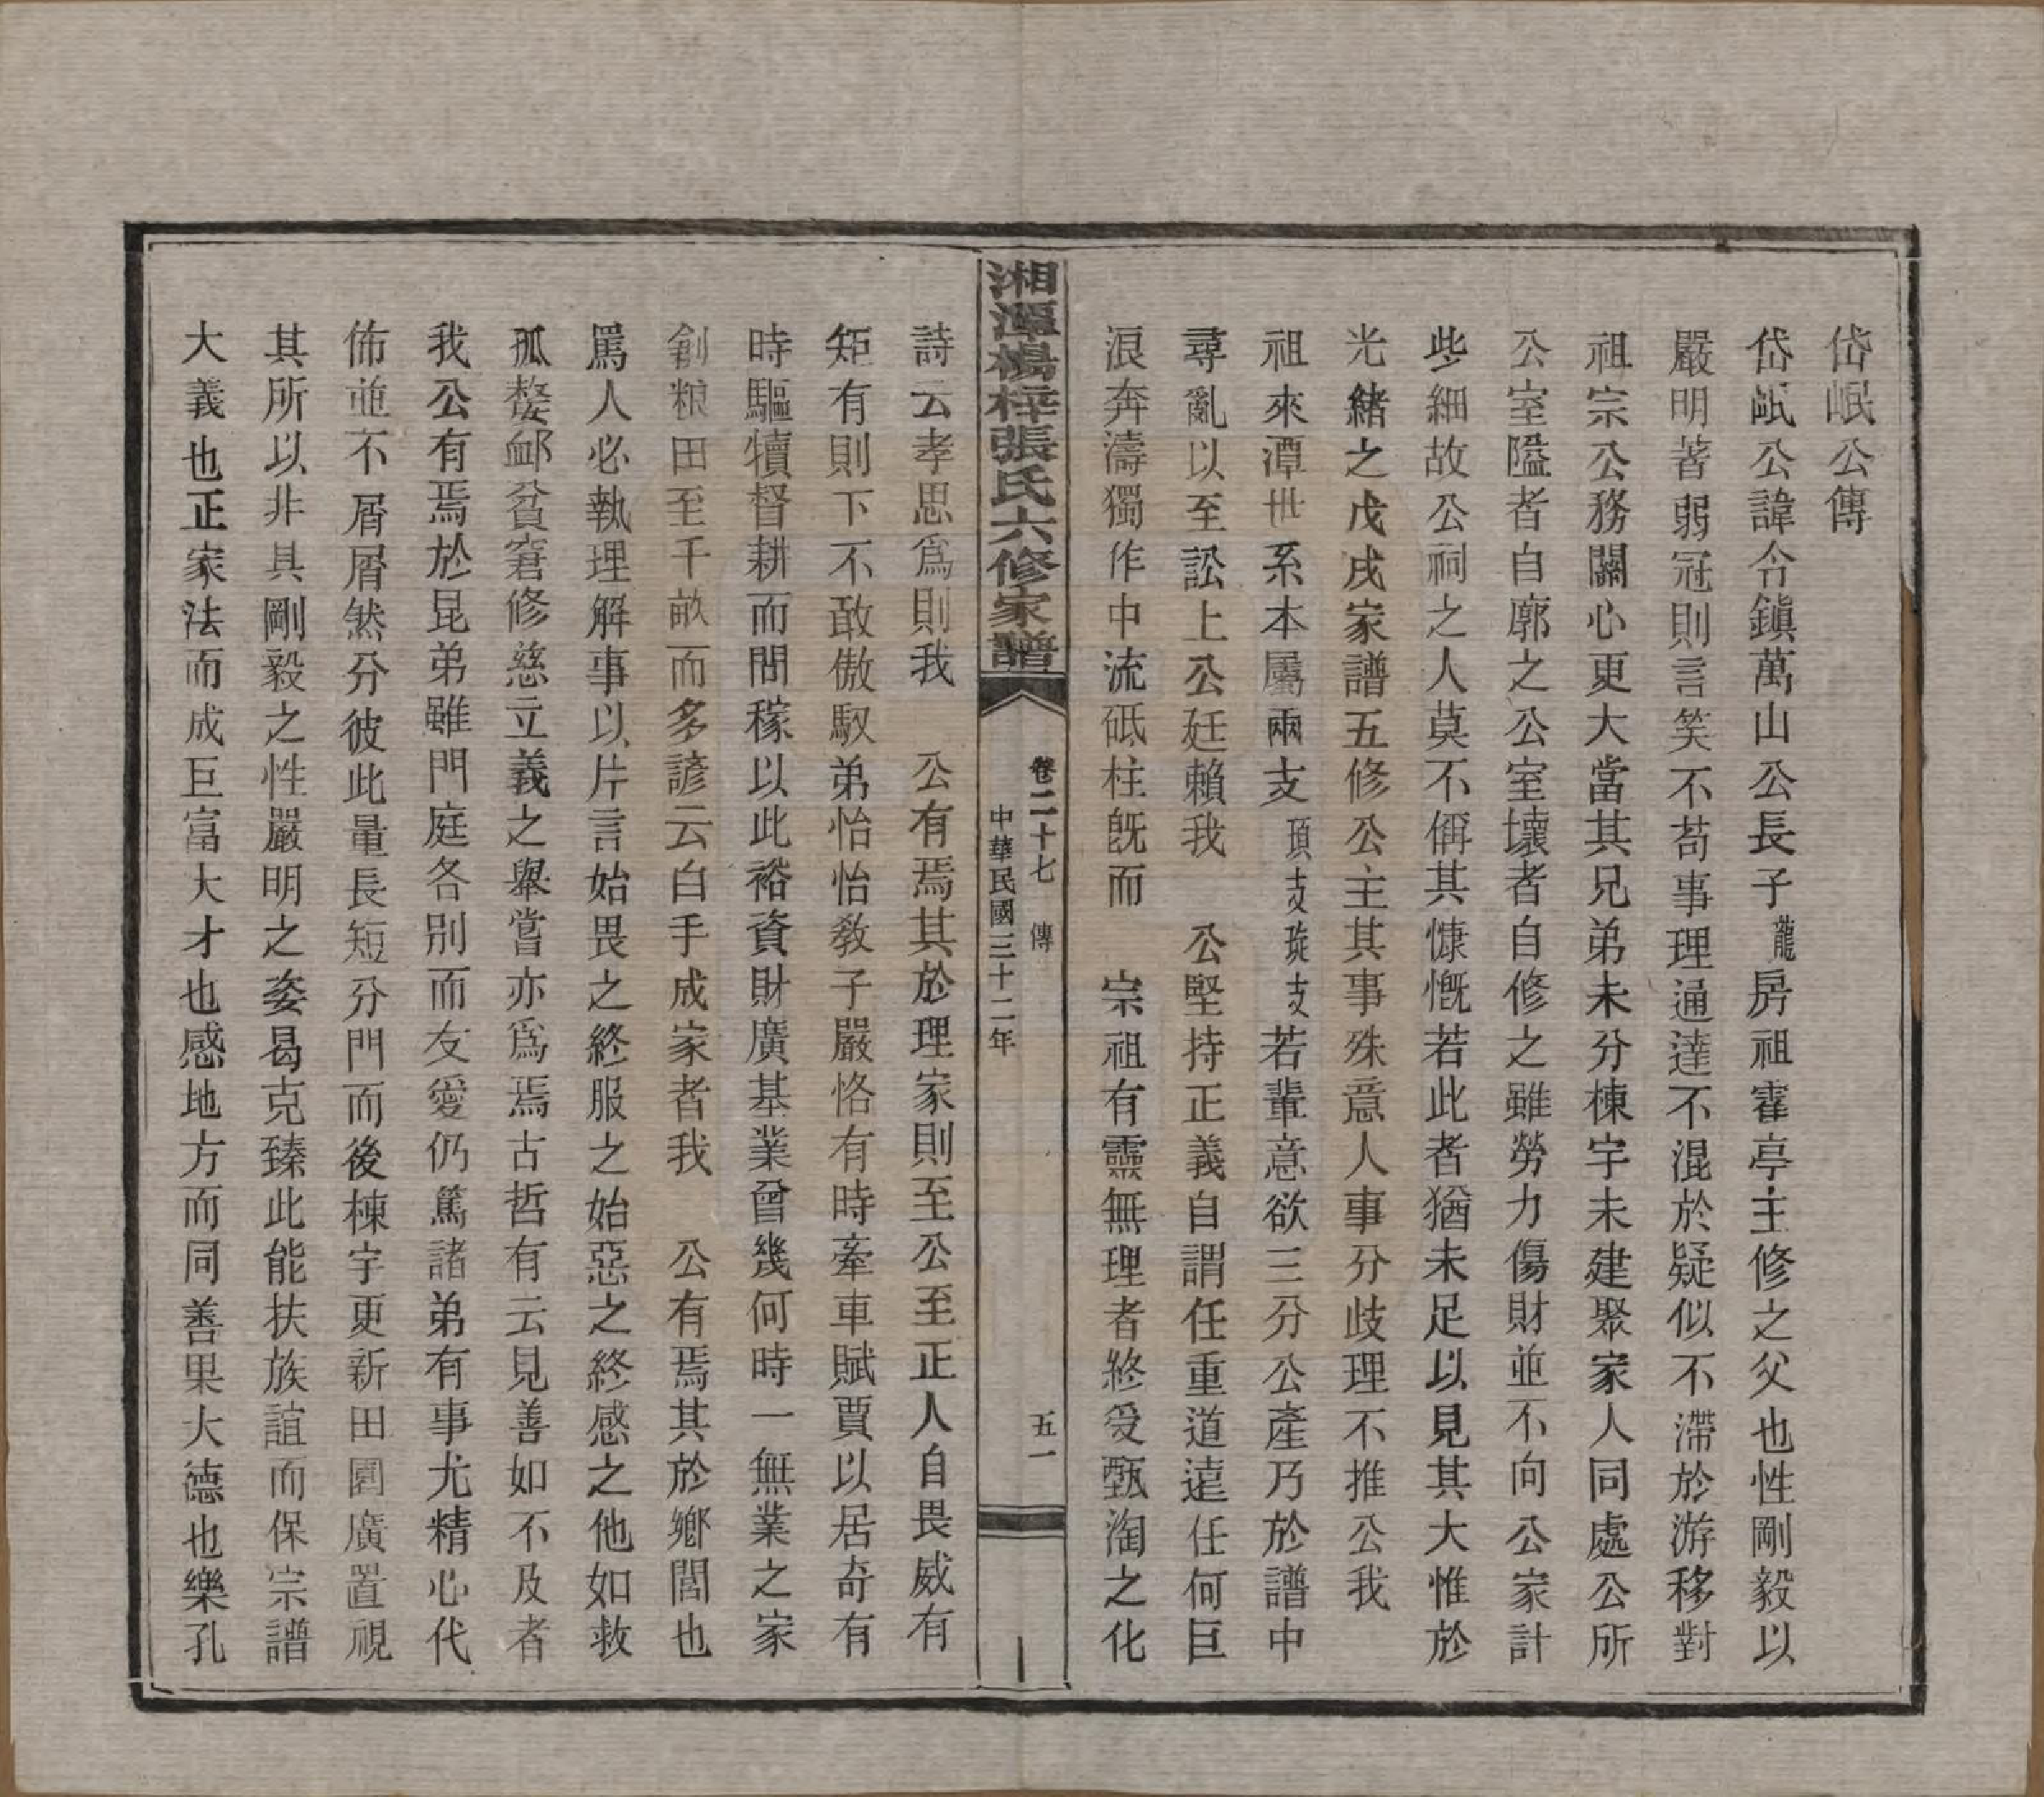 岱岷公傳
岱岷公諱令鎮萬山公長子蘢房祖霍亭主修之父也性剛毅以
嚴明著弱冠則言笑不苟事理通達不混於疑似不滯於游移對
祖宗公務關心更大當其兄弟未分棟宇未建聚家人同處公所
公室隘者自廓之公室壞者自修之雖勞力傷財並不向公家計
些細故公祠之人莫不稱其慷慨若此者猶未足以見其大惟於
光緒之戊戌家譜五修公主其事殊意人事分歧理不推公我
祖來潭世系本屬兩支頂支琁支若輩意欲三分公產乃於譜中
尋亂以至訟上公廷賴我　公堅持正義自謂任重道遠任何巨
浪奔濤獨作中流砥柱既而　宗祖有靈無理者終受甄淘之化
湘潭楊梓張氏六修家譜
卷二十七　傳　五一
中華民國三十二年
詩云孝思爲則我　公有焉其於理家則至公至正人自畏威有
矩有則下不敢傲馭弟怡怡教子嚴恪有時牽車賦賈以居奇有
時驅犢督耕而問稼以此裕資財廣基業曾幾何時一無業之家
創粮田至千畝而多諺云白手成家者我　公有焉其於鄉閭也
罵人必執理解事以片言始畏之終服之始惡之終感之他如救
孤嫠卹貧窘修慈立義之舉嘗亦爲焉古哲有云見善如不及者
我公有焉於昆弟雖門庭各別而友愛仍篤諸弟有事尤精心代
佈並不屑屑然分彼此量長短分門而後棟宇更新田園廣置視
其所以非具剛毅之性嚴明之姿曷克臻此能扶族誼而保宗譜
大義也正家法而成巨富大才也感地方而同善果大德也樂孔